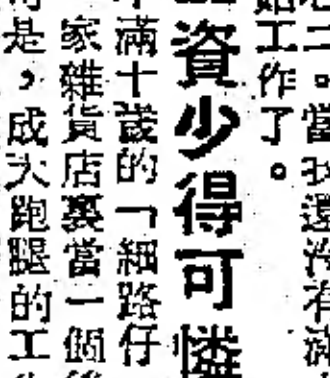 二。當我還沒有
始工作了。
資少得可憐
滿十歲的「細路仔
家雜貨店裏當一個
是，成大跑腿的工